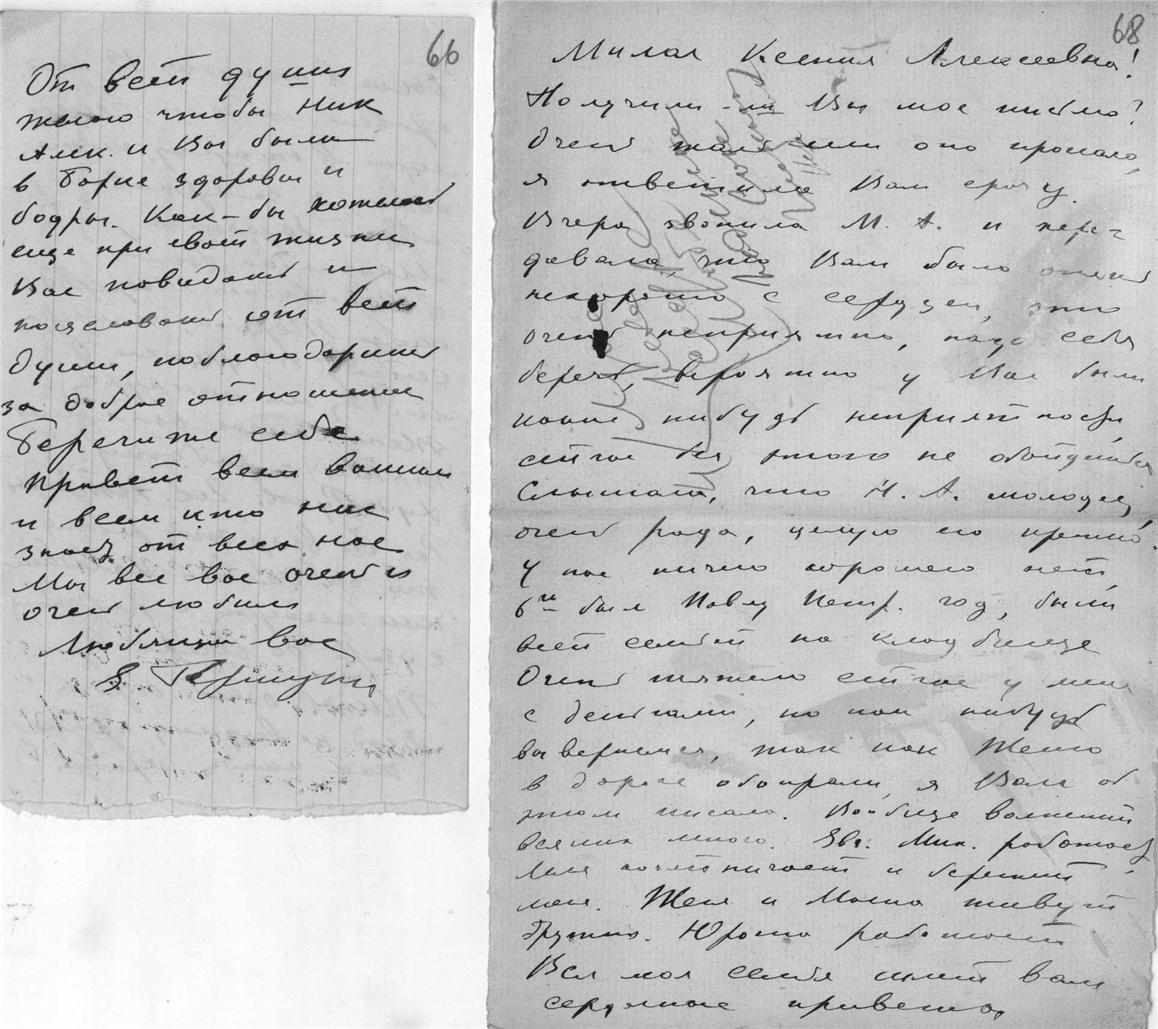 66
От всей души
желаю чтобы Ник
Алек. и Вы были
в Борке здоровы и
бодры. Как-бы хотелось
еще при своей жизни
Вас повидать и
поцеловать от всей
души, поблагодарить
за доброе отношение
Берегите себя
Привет всем вашим
и всем кто нас
знает от всех нас
Мы все вас очень и
очень любим
Любящая вас
68
Милая Ксения Алексеевна!
Получили-ли Вы мое письмо?
Очень жаль если оно пропало,
я ответила Вам сразу.
Вчера звонила М. А. и пере-
давала что Вам было очень
нехорошо с сердцем, это
очень неприятно, надо себя
беречь, вероятно у Вас были
какие нибудь неприятности,
сейчас без этого не обойдешься
Слышала, что Н. А. молодец,
очень рада, целую его крепко.
У нас ничего хорошего нет,
6го был Павлу Петр. год, были
всей семьей на кладбище
Очень тяжело сейчас у меня
с деньгами, но как нибудь
вывернемся, так как Женю
в дороге обокрали, я Вам об
этом писала. Вообще волнений
всяких много. Евг. Мих. работает,
меня. Женя и Маша живут
дружно. Юрочка работает
Вся моя семья шлет вам
сердечные приветы,